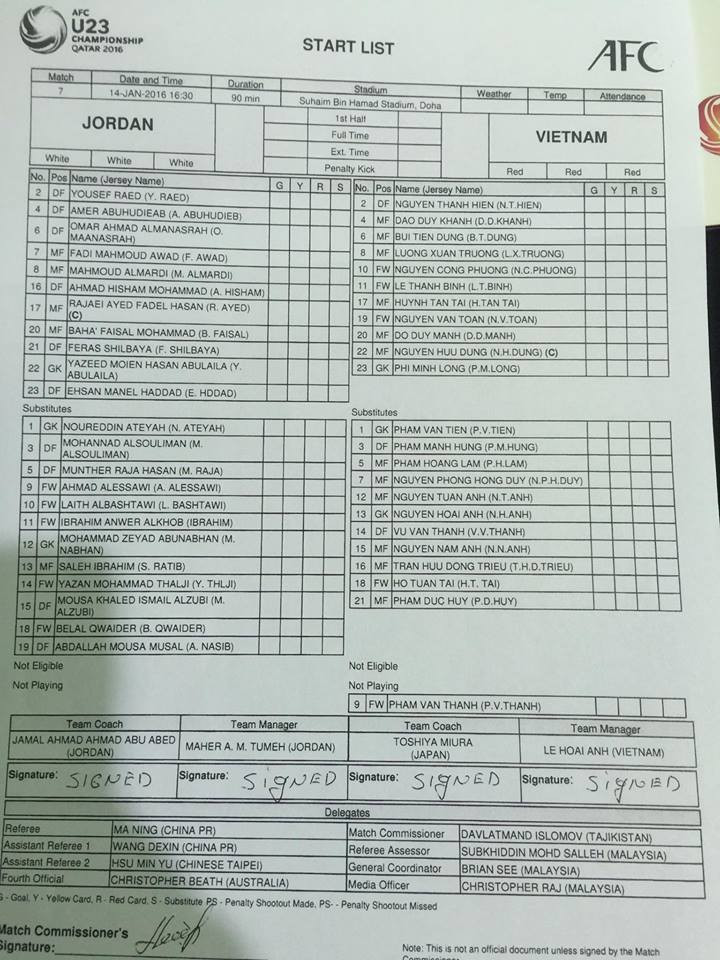 AFC
U23
CHAMPIONSHIP
QATAR 2016
START LIST
AFC
Match Date and Time Duration Stadium Weather Temp Attendance
7 14-JAN-2016 16:30 90 min Suhaim Bin Hamad Stadium, Doha
JORDAN
1st Half
Full Time
Ext. Time
Penalty Kick
VIETNAM
White White White
Red Red Red
No. Pos Name (Jersey Name) G Y R S
2 DF YOUSEF RAED (Y. RAED)
4 DF AMER ABUHUDIEAB (A. ABUHUDIEB)
6 DF OMAR AHMAD ALMANASRAH (O.
MAANASRAH)
7 MF FADI MAHMOUD AWAD (F. AWAD)
8 MF MAHMOUD ALMARDI (M. ALMARDI)
16 DF AHMAD HISHAM MOHAMMAD (A. HISHAM)
17 MF RAJAEI AYED FADEL HASAN (R. AYED)
(C)
20 MF BAHA' FAISAL MOHAMMAD (B. FAISAL)
21 DF FERAS SHILBAYA (F. SHILBAYA)
22 GK YAZEED MOIEN HASAN ABULAILA (Y.
ABULAILA)
23 DF EHSAN MANEL HADDAD (E. HDDAD)
No. Pos Name (Jersey Name) G Y R S
2 DF NGUYEN THANH HIEN (N.T.HIEN)
4 MF DAO DUY KHANH (D.D.KHANH)
6 MF BUI TIEN DUNG (B.T.DUNG)
8 MF LUONG XUAN TRUONG (L.X.TRUONG)
10 FW NGUYEN CONG PHUONG (N.C.PHUONG)
11 FW LE THANH BINH (L.T.BINH)
17 MF HUYNH TAN TAI (H.TAN TAI)
19 FW NGUYEN VAN TOAN (N.V.TOAN)
20 MF DO DUY MANH (D.D.MANH)
22 MF NGUYEN HUU DUNG (N.H.DUNG) (C)
23 GK PHI MINH LONG (P.M.LONG)
Substitutes
1 GK NOUREDDIN ATEYAH (N. ATEYAH)
3 DF MOHANNAD ALSOULIMAN (M.
ALSOULIMAN)
5 DF MUNTHER RAJA HASAN (M. RAJA)
9 FW AHMAD ALESSAWI (A. ALESSAWI)
10 FW LAITH ALBASHTAWI (L. BASHTAWI)
11 FW IBRAHIM ANWER ALKHOB (IBRAHIM)
12 GK MOHAMMAD ZEYAD ABUNABHAN (M.
NABHAN)
13 MF SALEH IBRAHIM (S. RATIB)
14 FW YAZAN MOHAMMAD THALJI (Y. THLJI)
15 DF MOUSA KHALED ISMAIL ALZUBI (M.
ALZUBI)
18 FW BELAL QWAIDER (B. QWAIDER)
19 DF ABDALLAH MOUSA MUSAL (A. NASIB)
Substitutes
1 GK PHAM VAN TIEN (P.V.TIEN)
3 DF PHAM MANH HUNG (P.M.HUNG)
5 MF PHAM HOANG LAM (P.H.LAM)
7 MF NGUYEN PHONG HONG DUY (N.P.H.DUY)
12 MF NGUYEN TUAN ANH (N.T.ANH)
13 GK NGUYEN HOAI ANH (N.H.ANH)
14 DF VU VAN THANH (V.V.THANH)
15 MF NGUYEN NAM ANH (N.N.ANH)
16 MF TRAN HUU DONG TRIEU (T.H.D.TRIEU)
18 FW HO TUAN TAI (H.T. TAI)
21 MF PHAM DUC HUY (P.D.HUY)
Not Eligible
Not Playing
Not Eligible
Not Playing
9 FW PHAM VAN THANH (P.V.THANH)
Team Coach Team Manager Team Coach Team Manager
JAMAL AHMAD AHMAD ABU ABED
(JORDAN)
MAHER A. M. TUMEH (JORDAN)
TOSHIYA MIURA
(JAPAN)
LE HOAI ANH (VIETNAM)
Signature: SIGNED Signature: SIgNED Signature: SIgNED Signature: SIgNED
Delegates
Referee MA NING (CHINA PR) Match Commissioner DAVLATMAND ISLOMOV (TAJIKISTAN)
Assistant Referee 1 WANG DEXIN (CHINA PR) Referee Assessor SUBKHIDDIN MOHD SALLEH (MALAYSIA)
Assistant Referee 2 HSU MIN YU (CHINESE TAIPEI) General Coordinator BRIAN SEE (MALAYSIA)
Fourth Official CHRISTOPHER BEATH (AUSTRALIA) Media Officer CHRISTOPHER RAJ (MALAYSIA)
G - Goal, Y - Yellow Card, R - Red Card, S - Substitute PS - Penalty Shootout Made, PS- - Penalty Shootout Missed
Match Commissioner's
Signature:
Note: This is not an official document unless signed by the Match